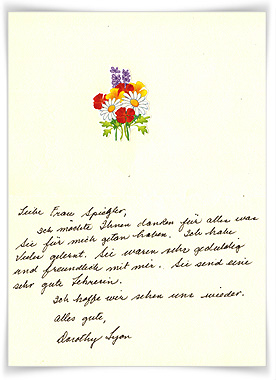 Liebe Frau Spiegler,
Ich möchte Ihnen danken für alles was
Sie für mich getan haben. Ich habe
vieles gelernt. Sie waren sehr geduldig
und freundlich mit mir. Sie send eine
sehr gute Lehrerin.
Ich hoffe wir sehen uns wieder.
Alles gute,
Dorothy Lyon